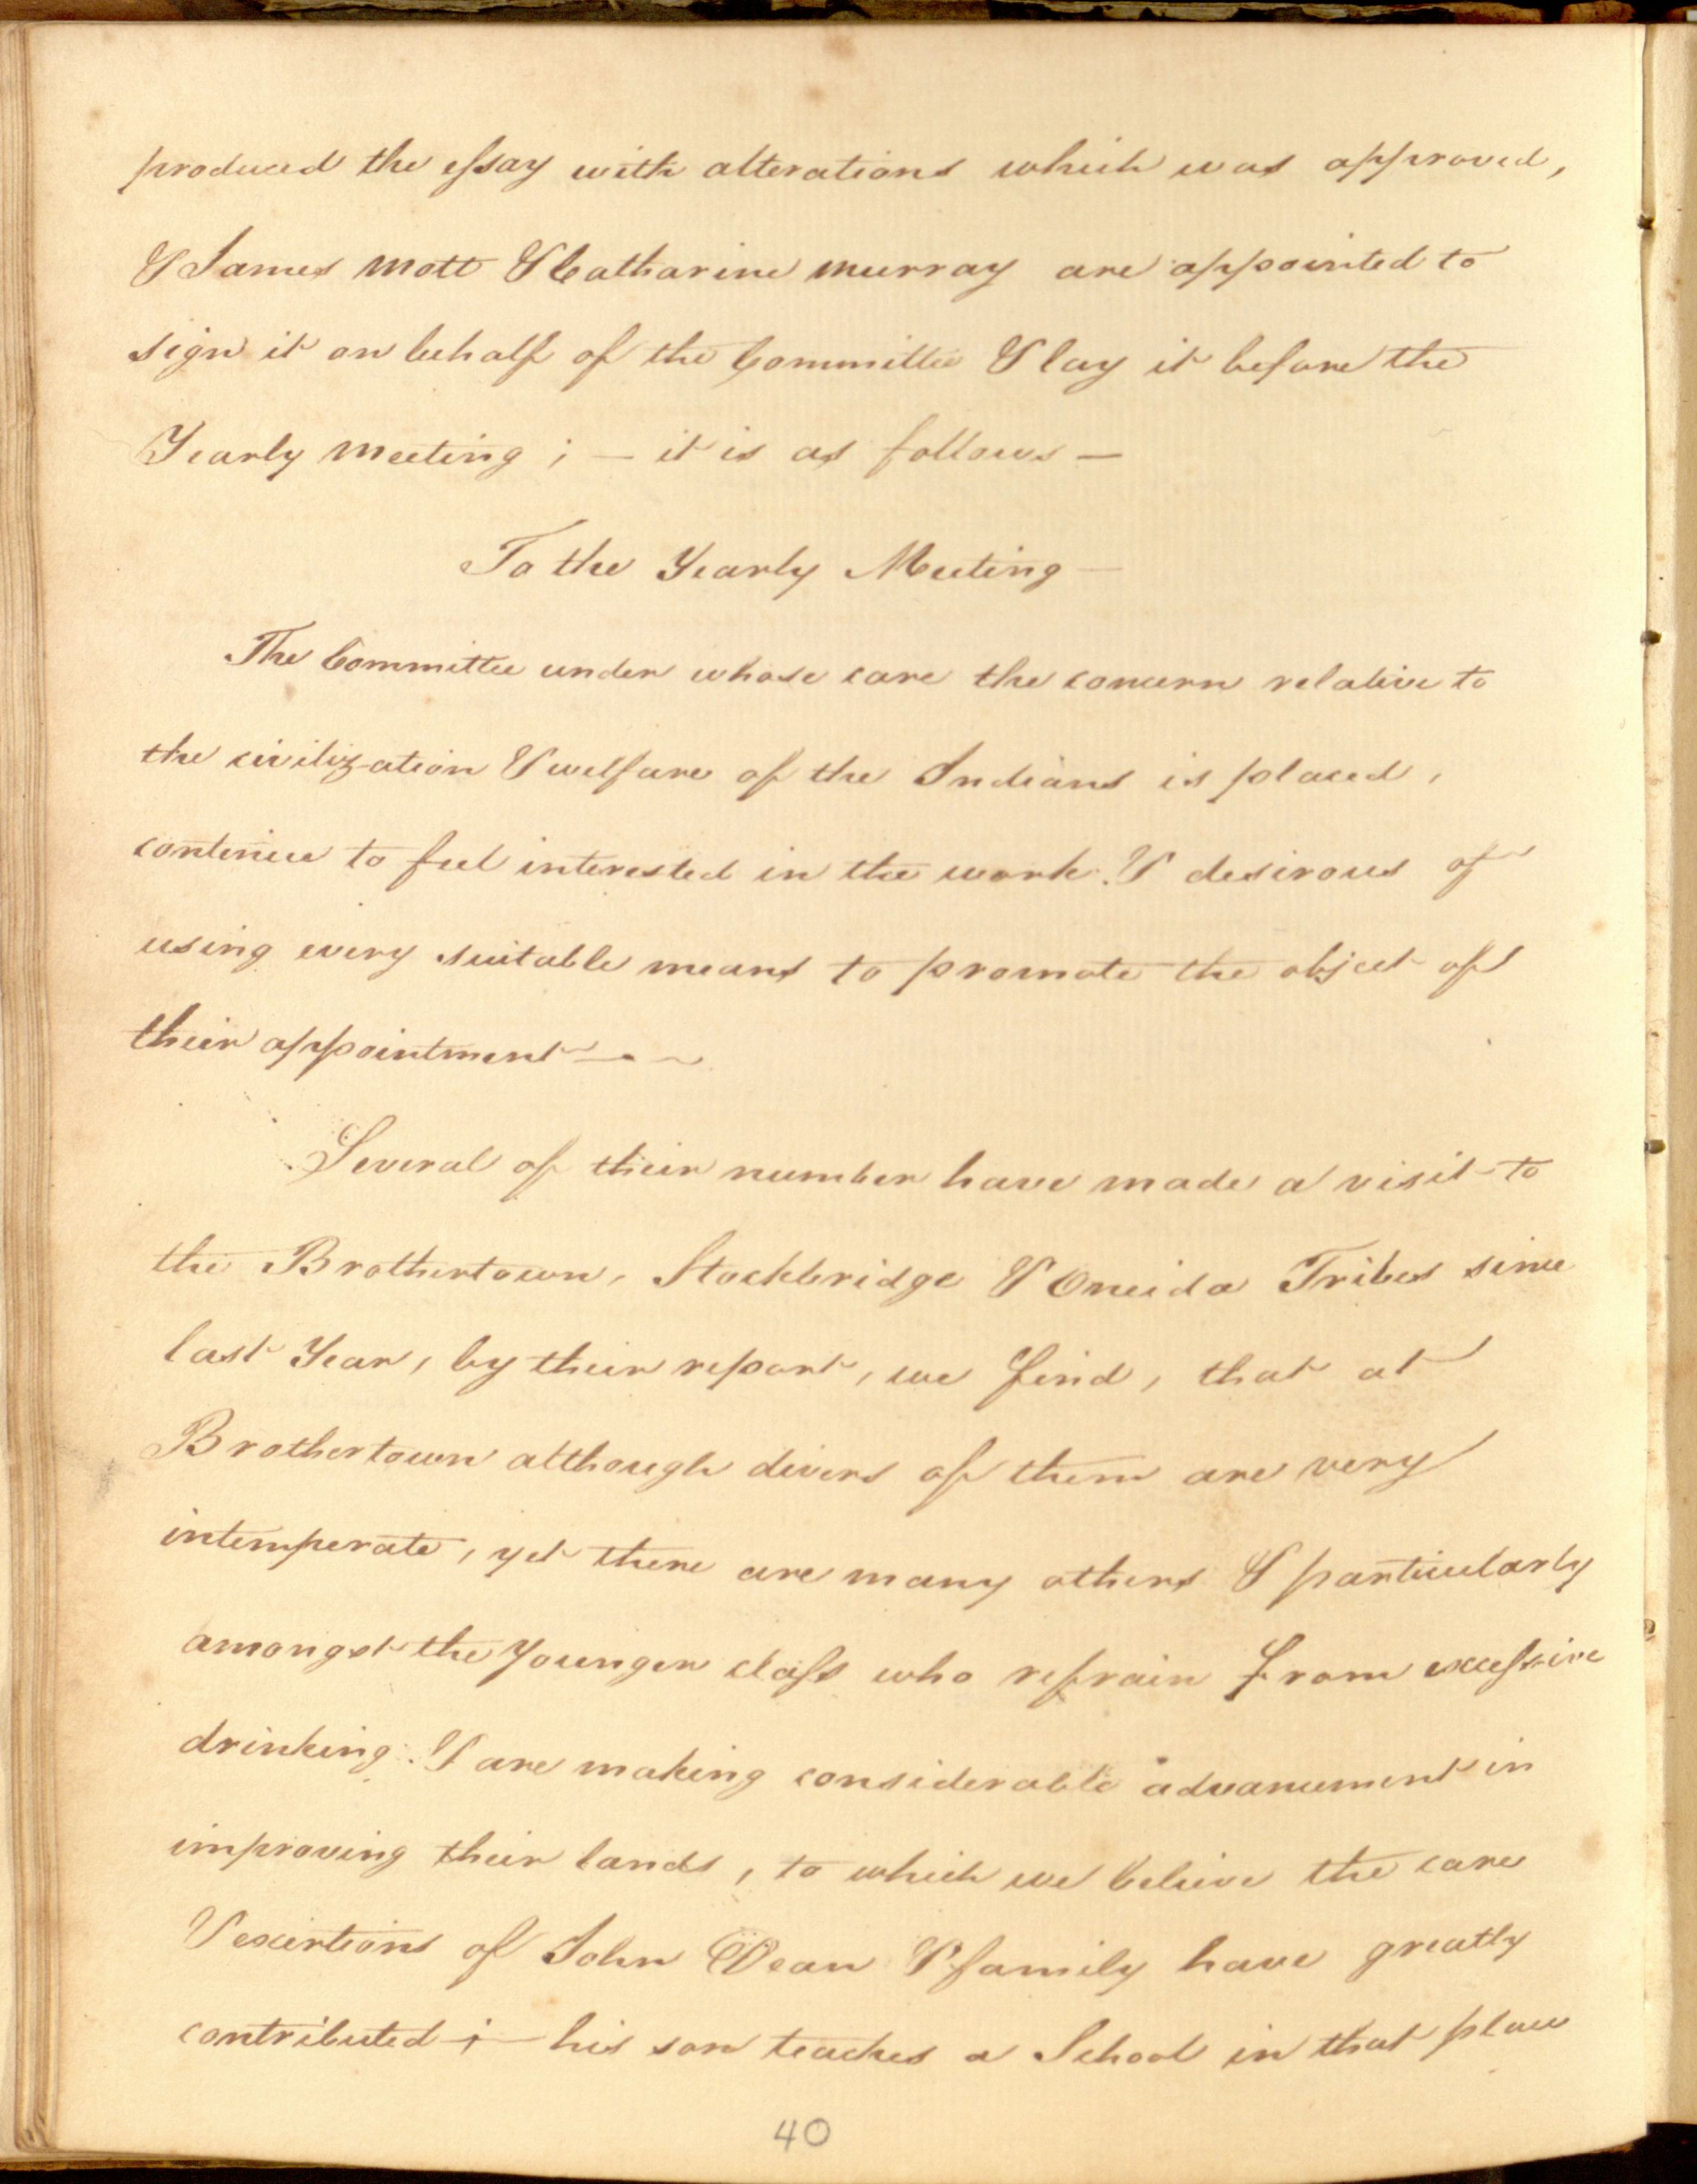 produced the essay with alterations which was approved,
& James Mott & Catharine Murray are appointed to
sign it on behalf of the Committee & lay it before the
Yearly Meeting ; — it is as follows —
To the Yearly Meeting —
The Committee under whose care the concern relative to
the civilization & welfare of the Indians is placed,
continue to feel interested in the work. & desirous of
using every suitable means to promote the object of
their appointment —
Several of their number have made a visit to
the Brothertown, Stockbridge & Oneida Tribes since
last Year, by their report, we find, that at
Brothertown although divers of them are very
intemperate, yet there are many others & particularly
amongst the Younger class who refrain from excessive
drinking. & are making considerable advancement in
improving their lands, to which we believe the care
& exertions of John Dean & family have greatly
contributed ; — his son teaches a School in that place
40